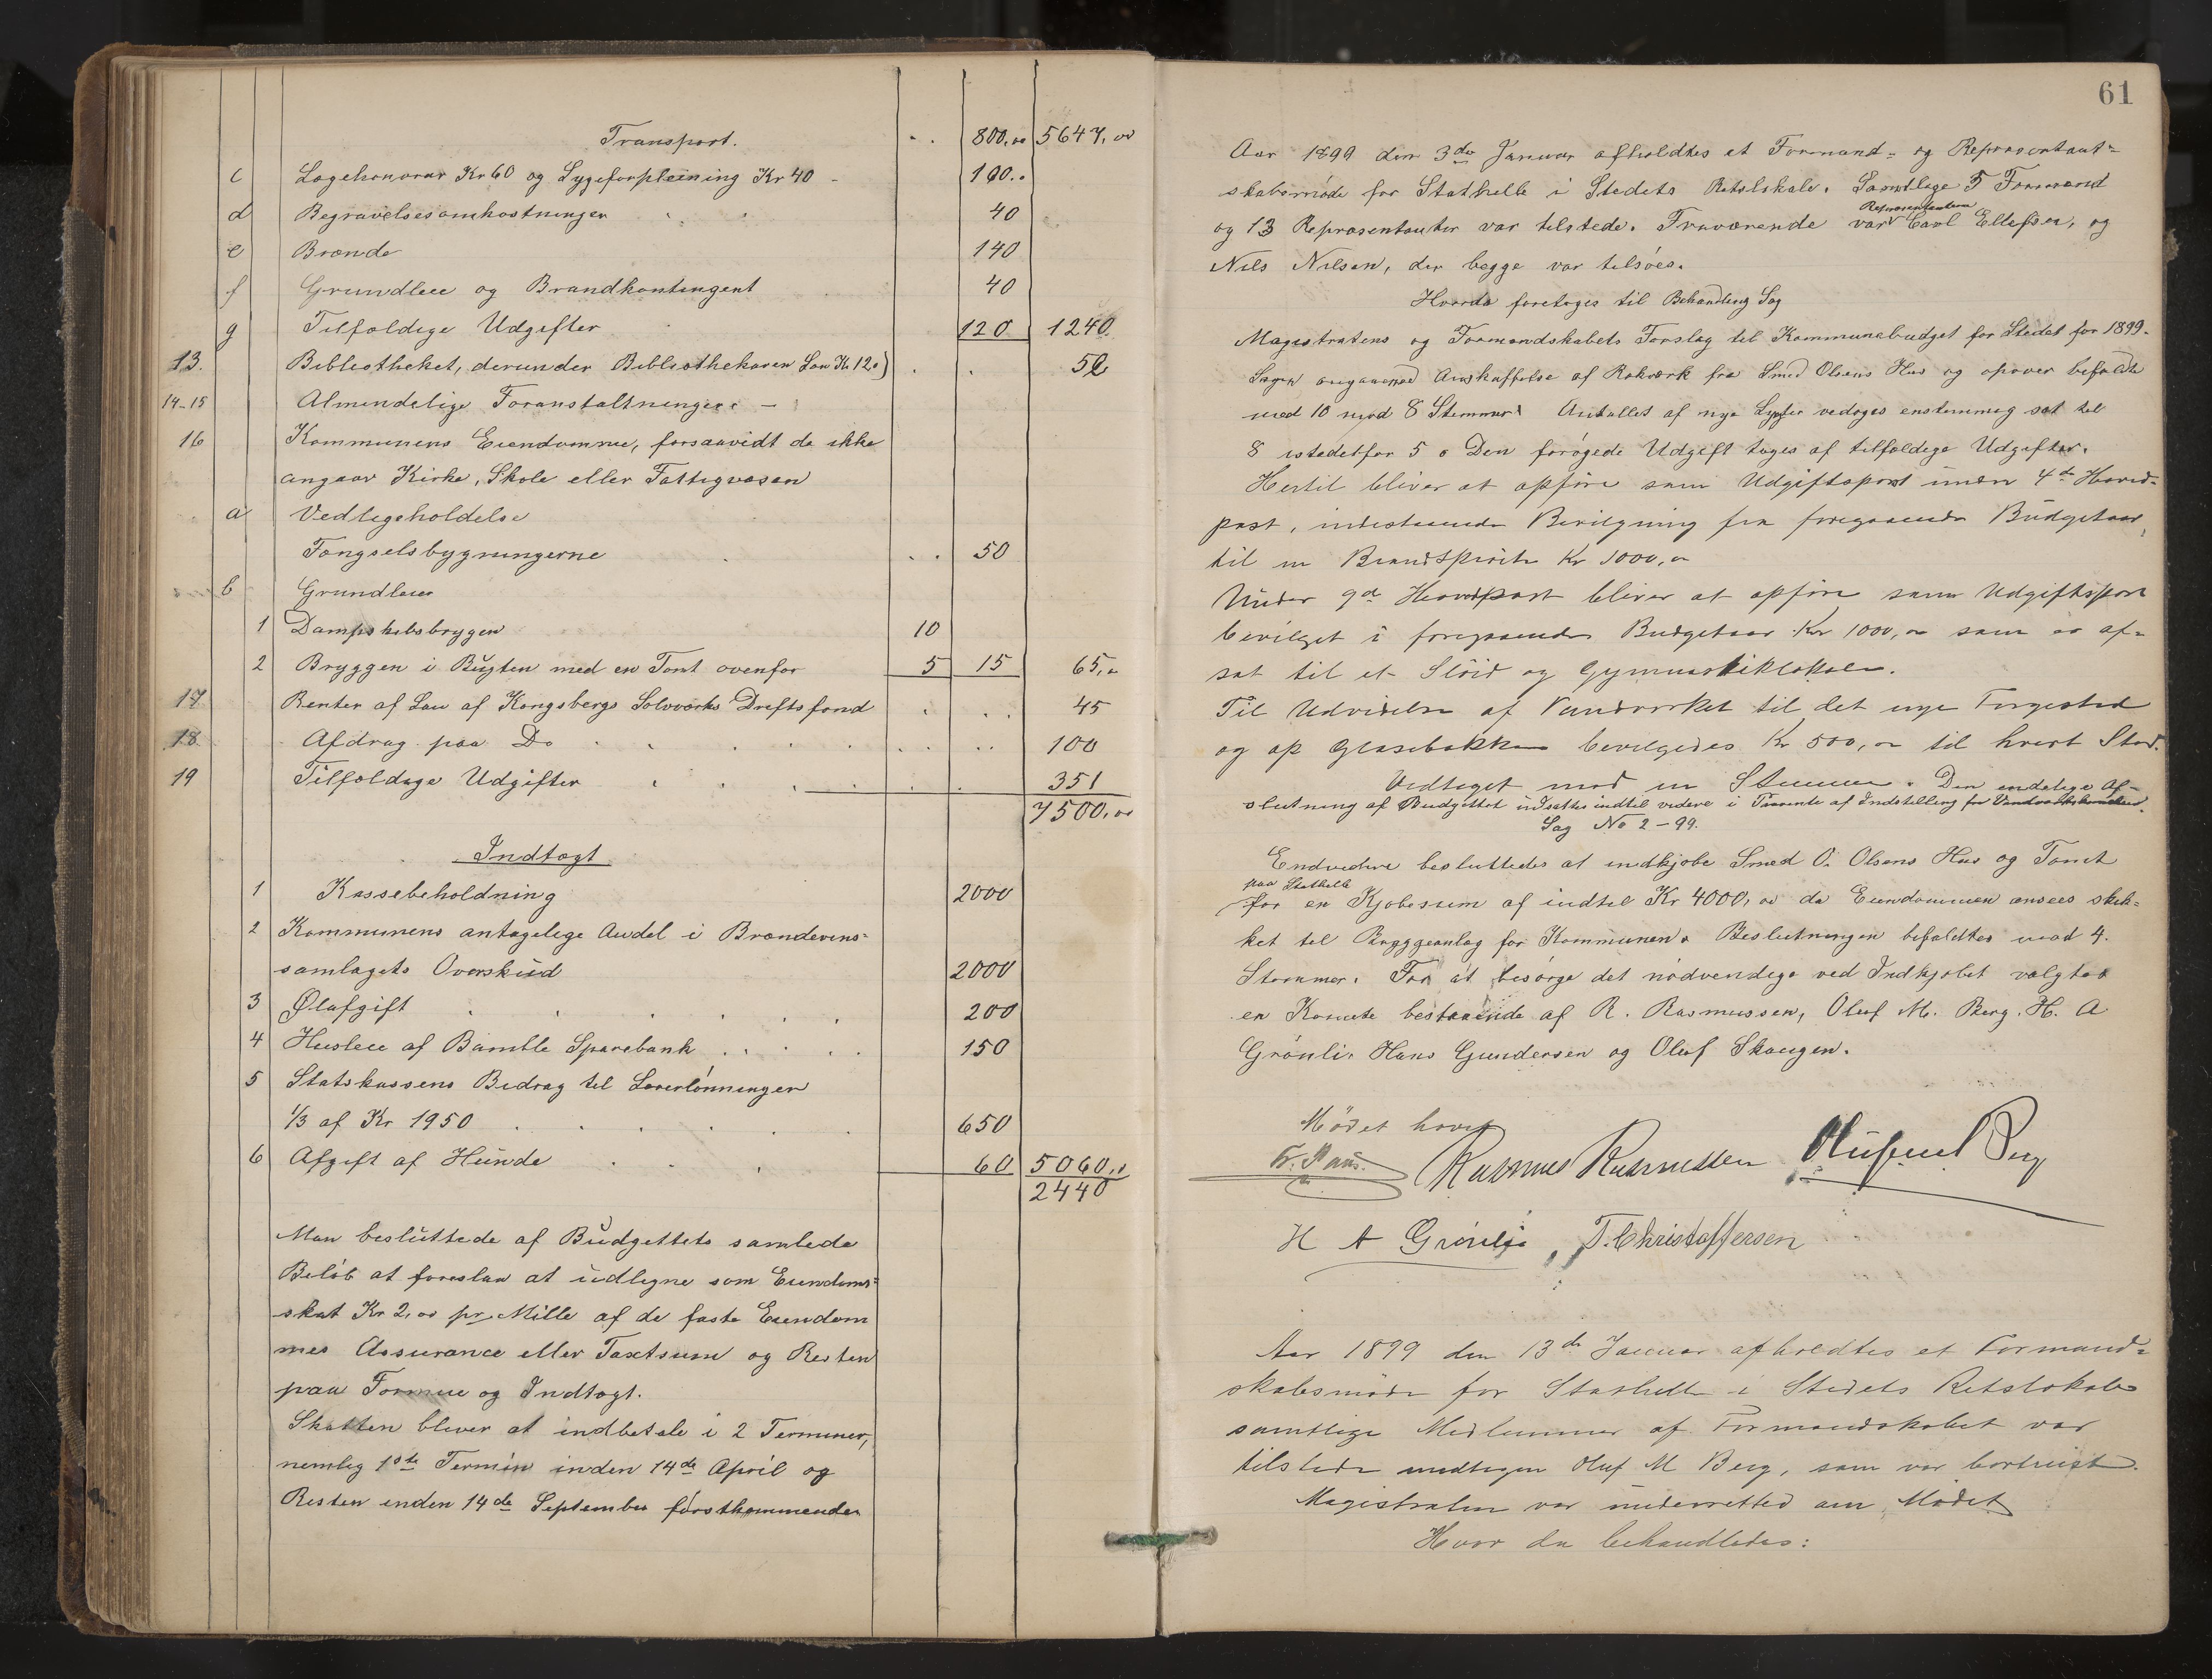 Transport. . . 800,00 5647,00
c Lægehonorar Kr 60 og Sygeforpleining Kr 40 - 100..
d Begravelsesomkostninger 40
e Brænde 140
f Grundleie og Brandkontingent 40
g Tilfældige Udgifter 120 1240
13. Bibliotheket, derunder Bibliothekaren Løn Kr 12,) . . 52
14-15 Almindelige Foranstaltninger. -
16 Kommunens Eiendomme, forsaavidt de ikke
angaar Kirke, Skole eller Fattigvæsen
a Vedligeholdelse
Fængselsbygningerne . . 50
b Grundleier
1 Dampskibsbryggen 10
2 Bryggen i Bugten med en Tomt ovenfor 5 15 65,00
17 Renter af Laan af Kongsbergs Sølvværks Driftsfond . . . 45
18. Afdrag paa Do . . . . . 100
19 Tilfældige Udgifter . . . . 351
7500,00
Indtægt
1 Kassebeholdning 2000
2 Kommunens antagelige Andel i Brændevins-
samlagets Overskud 2000
3 Ølafgift . . . . . 200
4 Husleie af Bamble Sparebank . . . . 150
5 Statskassens Bidrag til Lærerlønninger
1/3 af Kr 1950 . . . . . 650
6 Afgift af Hunde . . . 60 5060,00
2440
Man besluttede af Budgettets samlede
Beløb at foreslaa at udligne som Eiendoms-
skat Kr 2,00 pr Mille af de faste Eiendom
mes Assurance eller Taxtsum og Resten
paa Formue og Indtægt.
Skatten bliver at indbetale i 2 Terminer,
nemlig 1ste Termin inden 14de April og
Resten inden 14de September førstkommende
61
Aar 1899 den 3die Januar afholdtes et Formand- og Repræsentant-
skabsmøde for Stathelle i Stedets Retslokale. Samtlige 5 Formænd
og 13 Repræsentanter var tilstede. Fraværende var Repræsentanterne Carl Ellefsen, og
Nils Nilsen, der begge var tilsøes.
Hvorda foretoges til Behandling Sag
Magistratens og Formandskabets Forslag til Kommunebudget for Stedet for 1899.
Sagen angaaende Anskaffelse af Rækværk fra Smed Olsens Hus og opover befaldt
med 10 mod 8 Stemmer. Antallet af nye Lygter vedtoges enstemmig sat til
8 istedetfor 5. Den forøgede Udgift tages af tilfældige Udgifter.
Hertil bliver at opføre som Udgiftspost under 4de Hoved-
post, indestaaende Bevilgning fra foregaaende Budgetaar,
til en Brandsprøite Kr 1000,00
Under 9de Hovedpost bliver at opføre som Udgiftspost
bevilget i foregaaende Budgetaar Kr 1000,00 som er af-
sat til et Sløid og Gymnastiklokale.
Til Udvidelse af Vandverket til det nye Færgested
og op Glasebakken bevilgedes Kr 500,00 til hvert Sted.
Vedtaget mod en Stemme. Den endelige Af-
slutning af Budgettet udsattes indtil videre i Paavente af Indstilling fra Vandværkskomiteen.
Sag No 2 - 99.
Endvidere besluttedes at indkjøbe Smed O. Olsens Hus og Tomt
paa Stathelle
for en Kjøbesum af indtil Kr 4000,00 da Eiendommen ansees skik-
ket til Bryggeanlæg for Kommunen. Beslutningen bifaldtes mod 4.
Stemmer. For at besørge det nødvendige ved Indkjøbet valgtes
en Komite bestaaende af R. Rasmussen, Oluf M. Berg. H. A
Grønli. Hans Gundersen og Oluf Skaugen.
Mødet hævet
Fr. Paus. Rasmus Rasmussen Oluf M Berg
H A Grønli, T. Christoffersen
Aar 1899 den 13de Januar afholdtes et Formand-
skabsmøde for Stathelle i Stedets Retslokale
samtlige Medlemmer af Formandskabet var
tilstede undtagen Oluf M Berg, som var bortreist.
Magistraten var underrettet om Mødet
Hvor da behandledes: